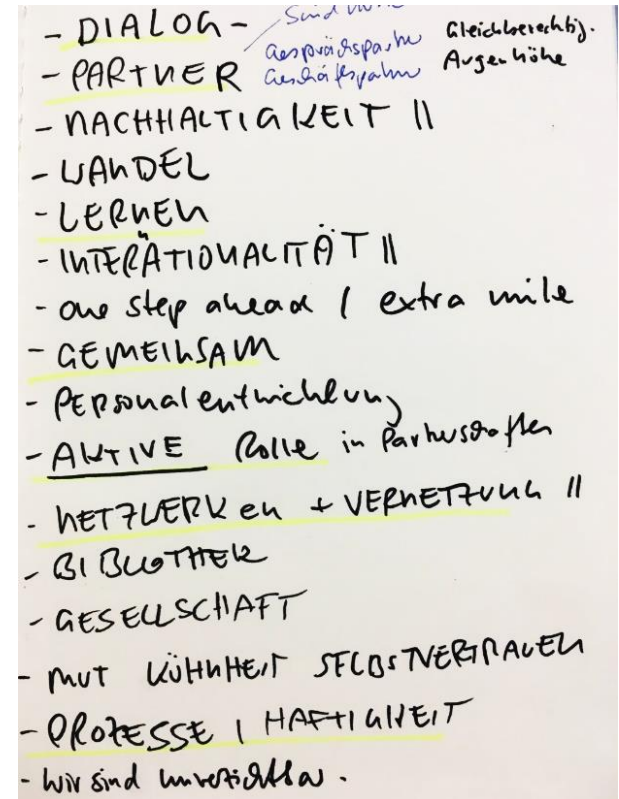 - DIALOG -
Gleichberechtig.
- PARTNER
Gesprächspartner
Geschäftspartner
Augenhöhe
- NACHHALTIGKEIT II
- WANDEL
- LERNEN
- INTERÄTIONALITÄT II
- one step ahead / extra mile
- GEMEINSAM
- Personalentwicklung
- AKTIVE Rolle in Partnerschaften
- NETZWERKen + VERNETZUNG II
- BIBLIOTHEK
- GESELLSCHAFT
- MUT KÜHNHEIT SELBSTVERTRAUEN
- PROZESSE | HAFTIGKEIT
- Wir sind unverzichtbar.